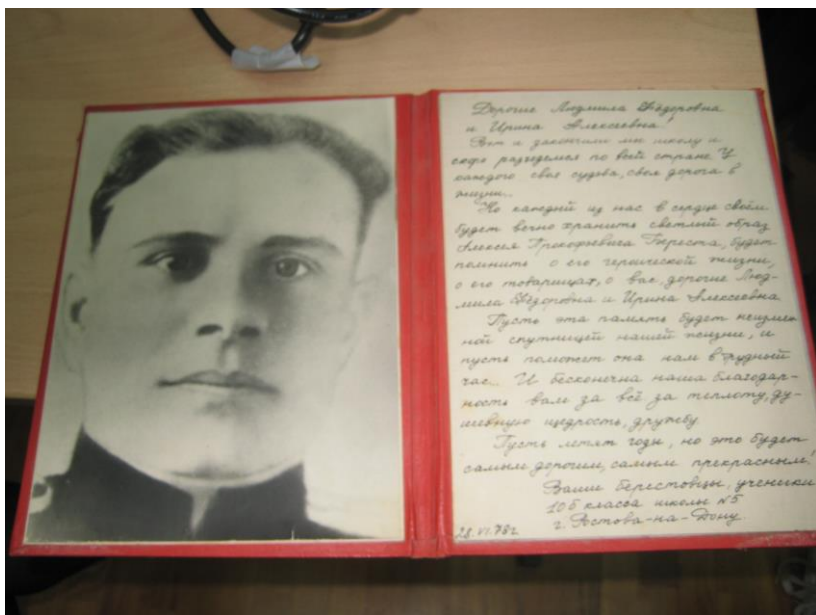 Дорогие Людмила Фёдоровна
и Ирина Алексеевна!
Вот и закончили мы школу и
скоро разъедемся по всей стране. У
каждого своя судьба, своя дорога в
жизни.
Но каждый из нас в сердце своём
будет вечно хранить светлый образ
Алексея Прокофьевича Береста, будет
помнить о его героической жизни,
о его товарищах, о вас, дорогие Люд-
мила Фёдоровна и Ирина Алексеевна.
Пусть эта память будет неизмен-
ной спутницей нашей жизни, и
пусть поможет она нам в трудный
час. И бесконечна наша благодар-
ность вам за всё: за теплоту, ду-
шевную щедрость, дружбу.
Пусть летят годы, но это будет
самым дорогим, самым прекрасным!
Ваши берестовцы, ученики
10б класса школы №5
г. Ростова-на-Дону.
28.VI.78г